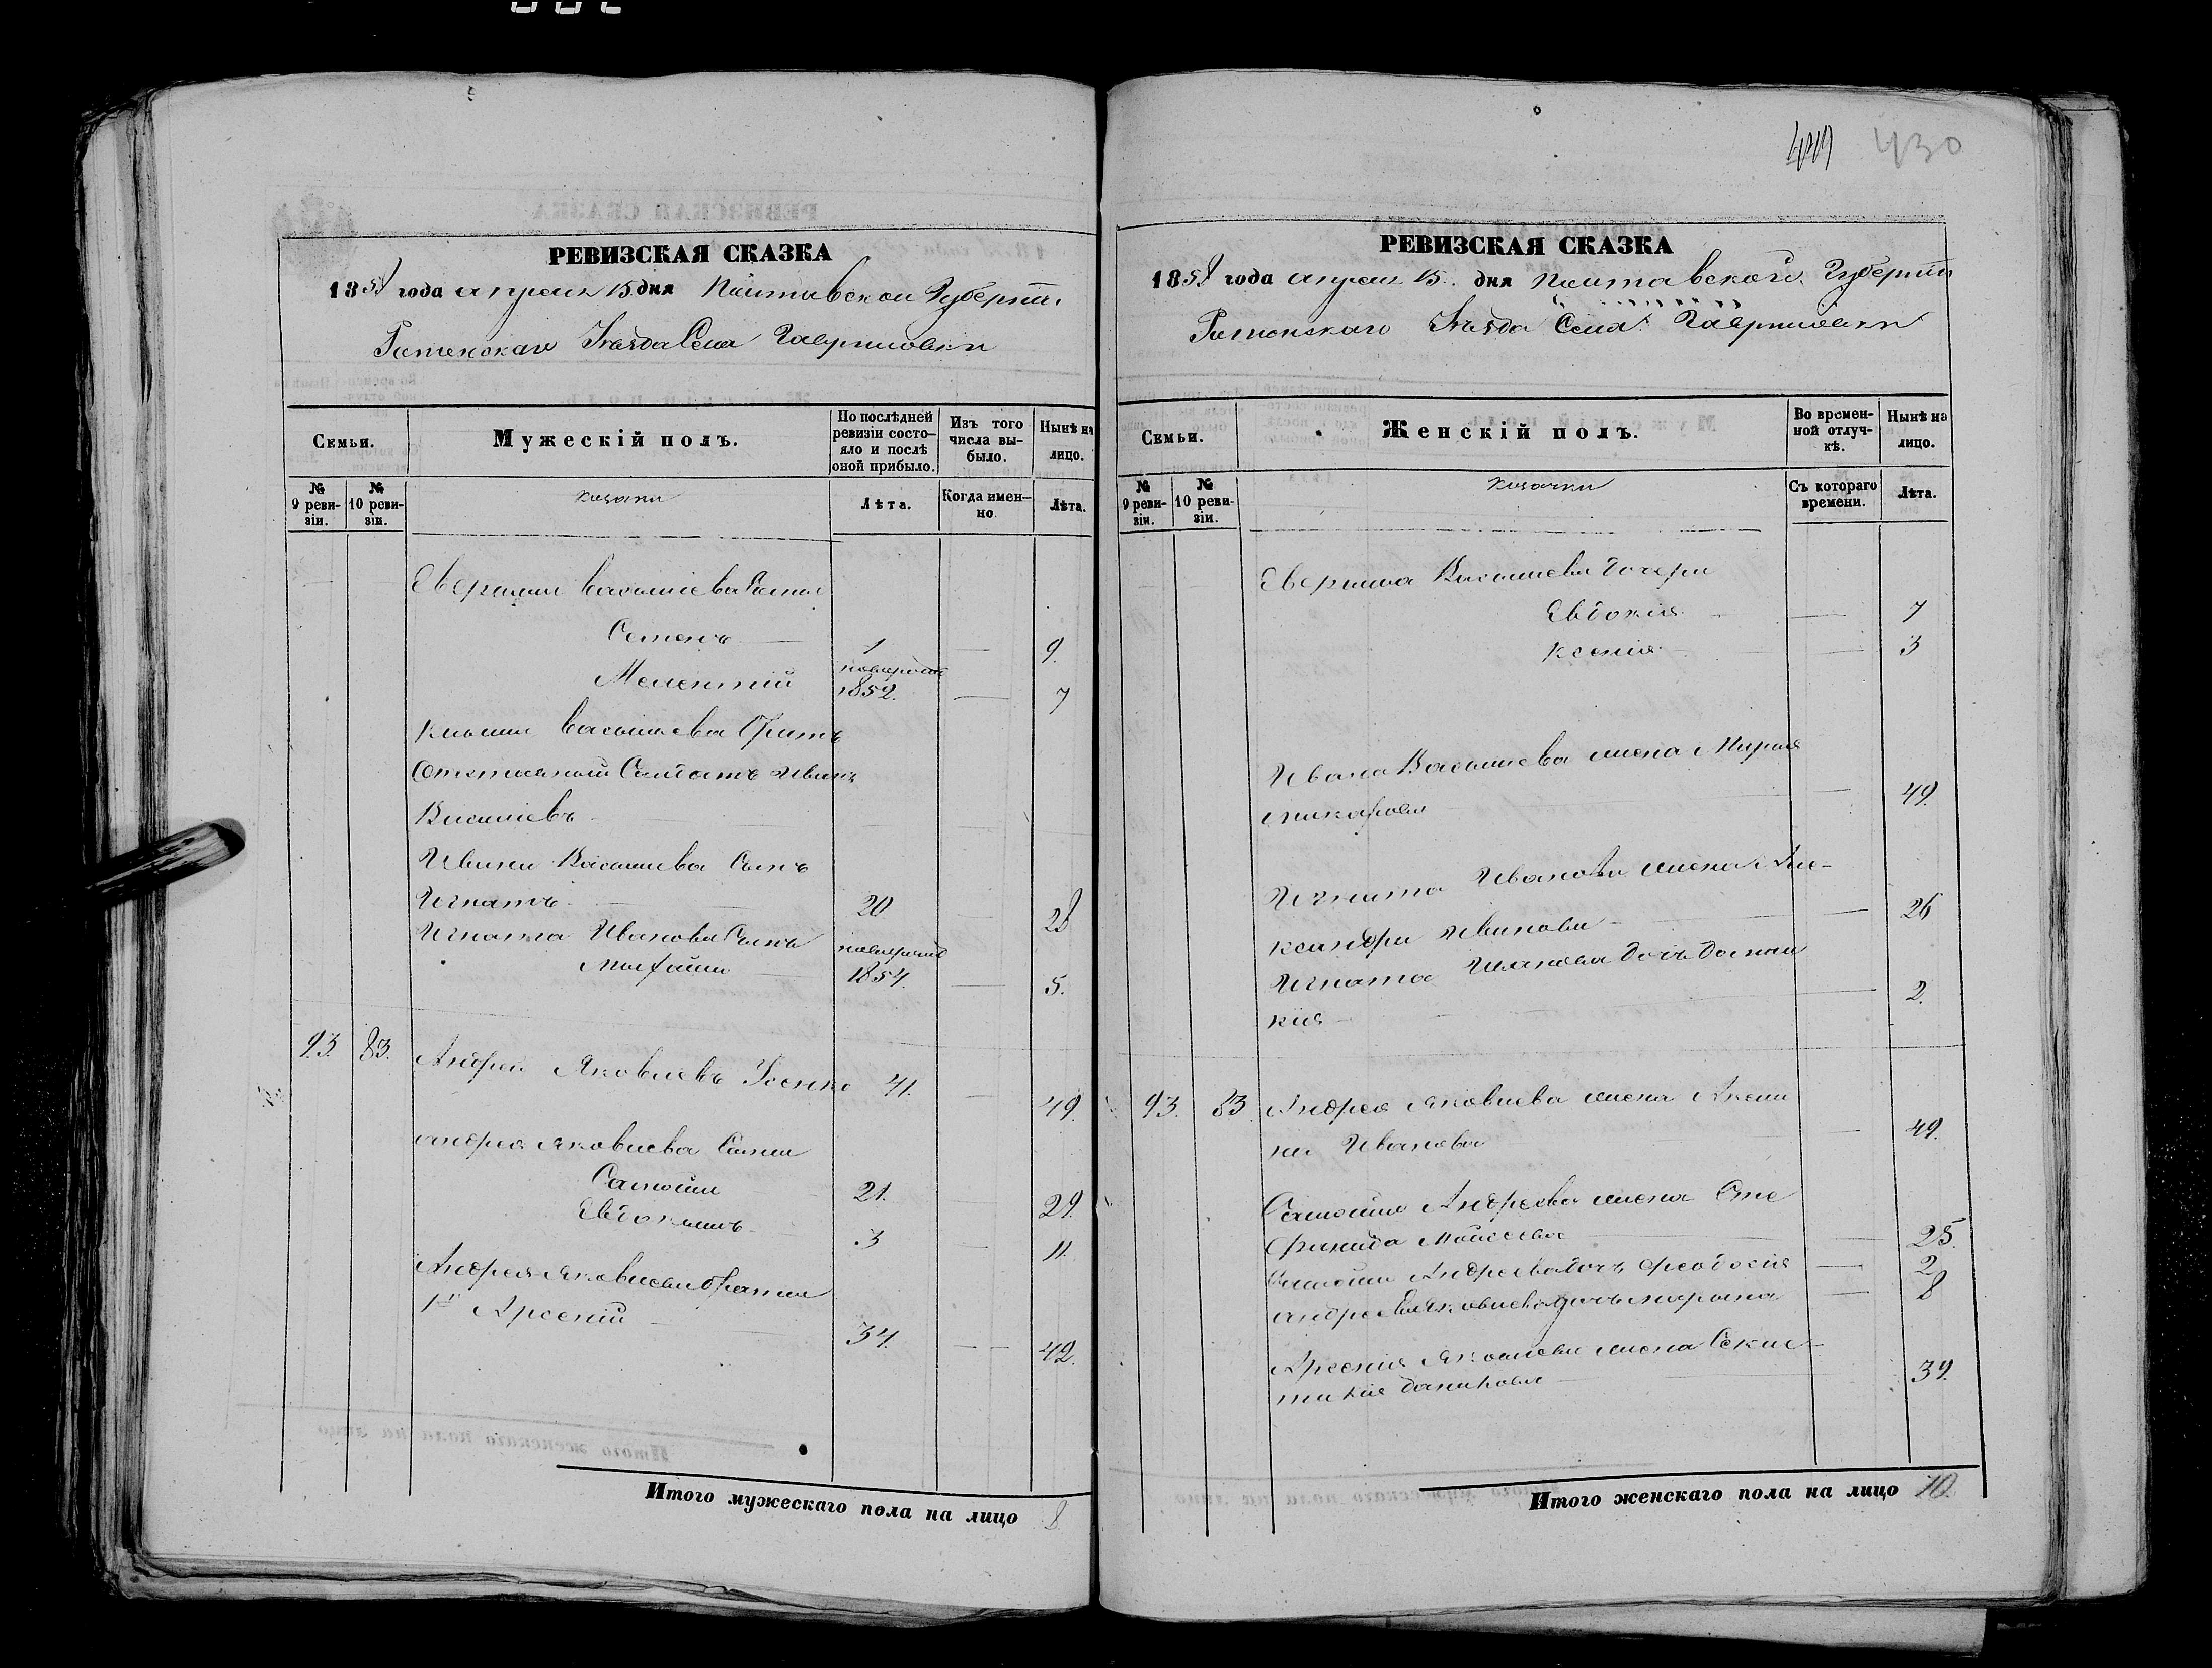 РЕВИЗСКАЯ СКАЗКА
1858 года апреля 15 дня Полтавской Губерніи
Роменскаго Уезда Села Гавриловки
Семьи.
Мужескій полъ.
По послѣдней ревизіи состояло и послѣ оной прибыло.
Изъ того числа выбыло.
Нынѣ на лицо.
№ 9 ревизіи.
№ 10 ревизіи.
козаки
Лѣта.
Когда именно
Лѣта.
Васильева
Семенъ 1 9.
Мелентій 1852. 7
Васильева братъ
Иванъ
Васильевъ
Ивана Васильева Сынъ
Игнатъ 20 28
Игната Иванова Сынъ
Михаилъ 1854. 5.
93. 83. Андрей Яковлевъ Усенко 41. 49.
Андрея Яковлева Сыны
Самойло 21. 29.
Евдокимъ 3 11.
Андрея Яковлева братья
1й Арсеній 34. 42.
Итого мужескаго пола на лицо 8.
430
РЕВИЗСКАЯ СКАЗКА
1858 года апреля 15. дня Полтавской Губерніи
Роменскаго Уезда Села Гавриловки
Семьи.
Женскій полъ.
Во временной отлучкѣ.
Нынѣ на лицо.
№ 9 ревизіи.
№ 10 ревизіи.
козачки
Съ котораго времени.
Лѣта.
Васильева дочери
Евдокія 7
Ксенія 3
Ивана Васильева жена Марія
Макарова 49.
Игната Иванова жена Але-
ксандра Иванова 26
Игната Иванова дочь Домни
кія 2.
93. 83 Андрея Яковлева жена Акели
на Иванова 49.
Самойла Андреева жена Сте
фанида Моисеева 25.
Самойла Андреева дочь Феодосія 2
Андрея Яковлева дочь Марина 8
Арсенія Яковлева жена
Данилова 39.
Итого женскаго пола на лицо 10.